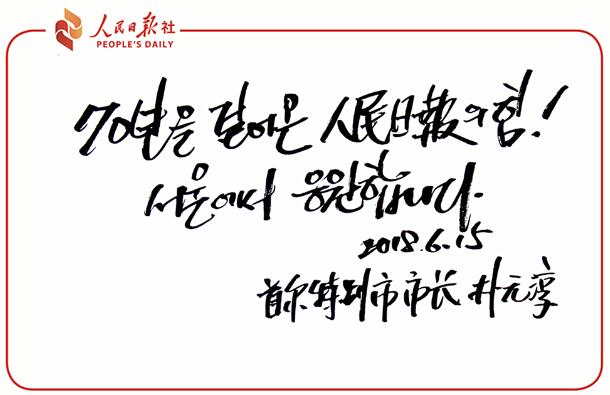 人民日报社
PEOPLE'S DAILY
70년을 걸어온 人民日報의 힘!
서울에서 응원합니다.
2018.6.15
首尔特别市市长 朴元淳